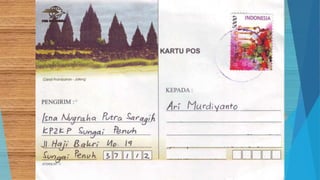 INDONESIA
5000
KARTU POS
Candi Prambanan - Jateng
PENGIRIM :
Isna Nugraha Putra Saragih
KP2KP Sungai Penuh
Jl. Haji Bakri No. 19
Sungai Penuh 37112
KEPADA :
Ari Murdiyanto